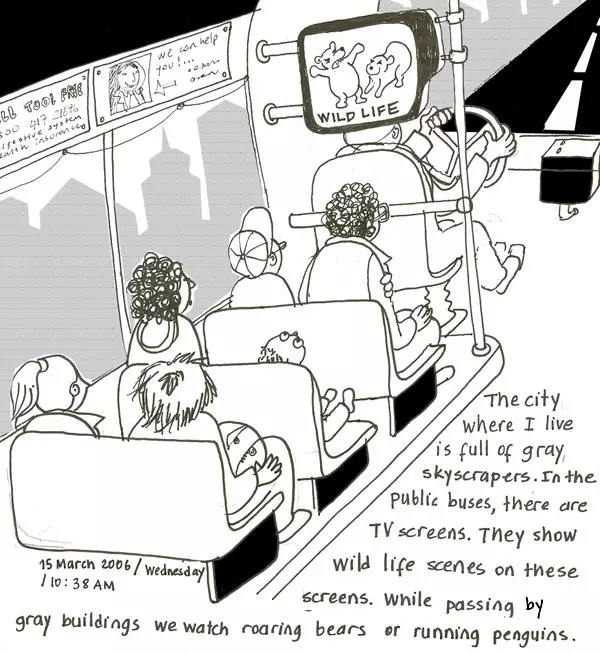 we can help
you!...
TOOL FREE
WILD LIFE
The city
where I live
is full of gray
skyscrapers. In the
public buses, there are
TV screens. They show
wild life scenes on these
screens. While passing by
gray buildings we watch roaring bears or running penguins.
15 March 2006 / Wednesday
/ 10:38 AM